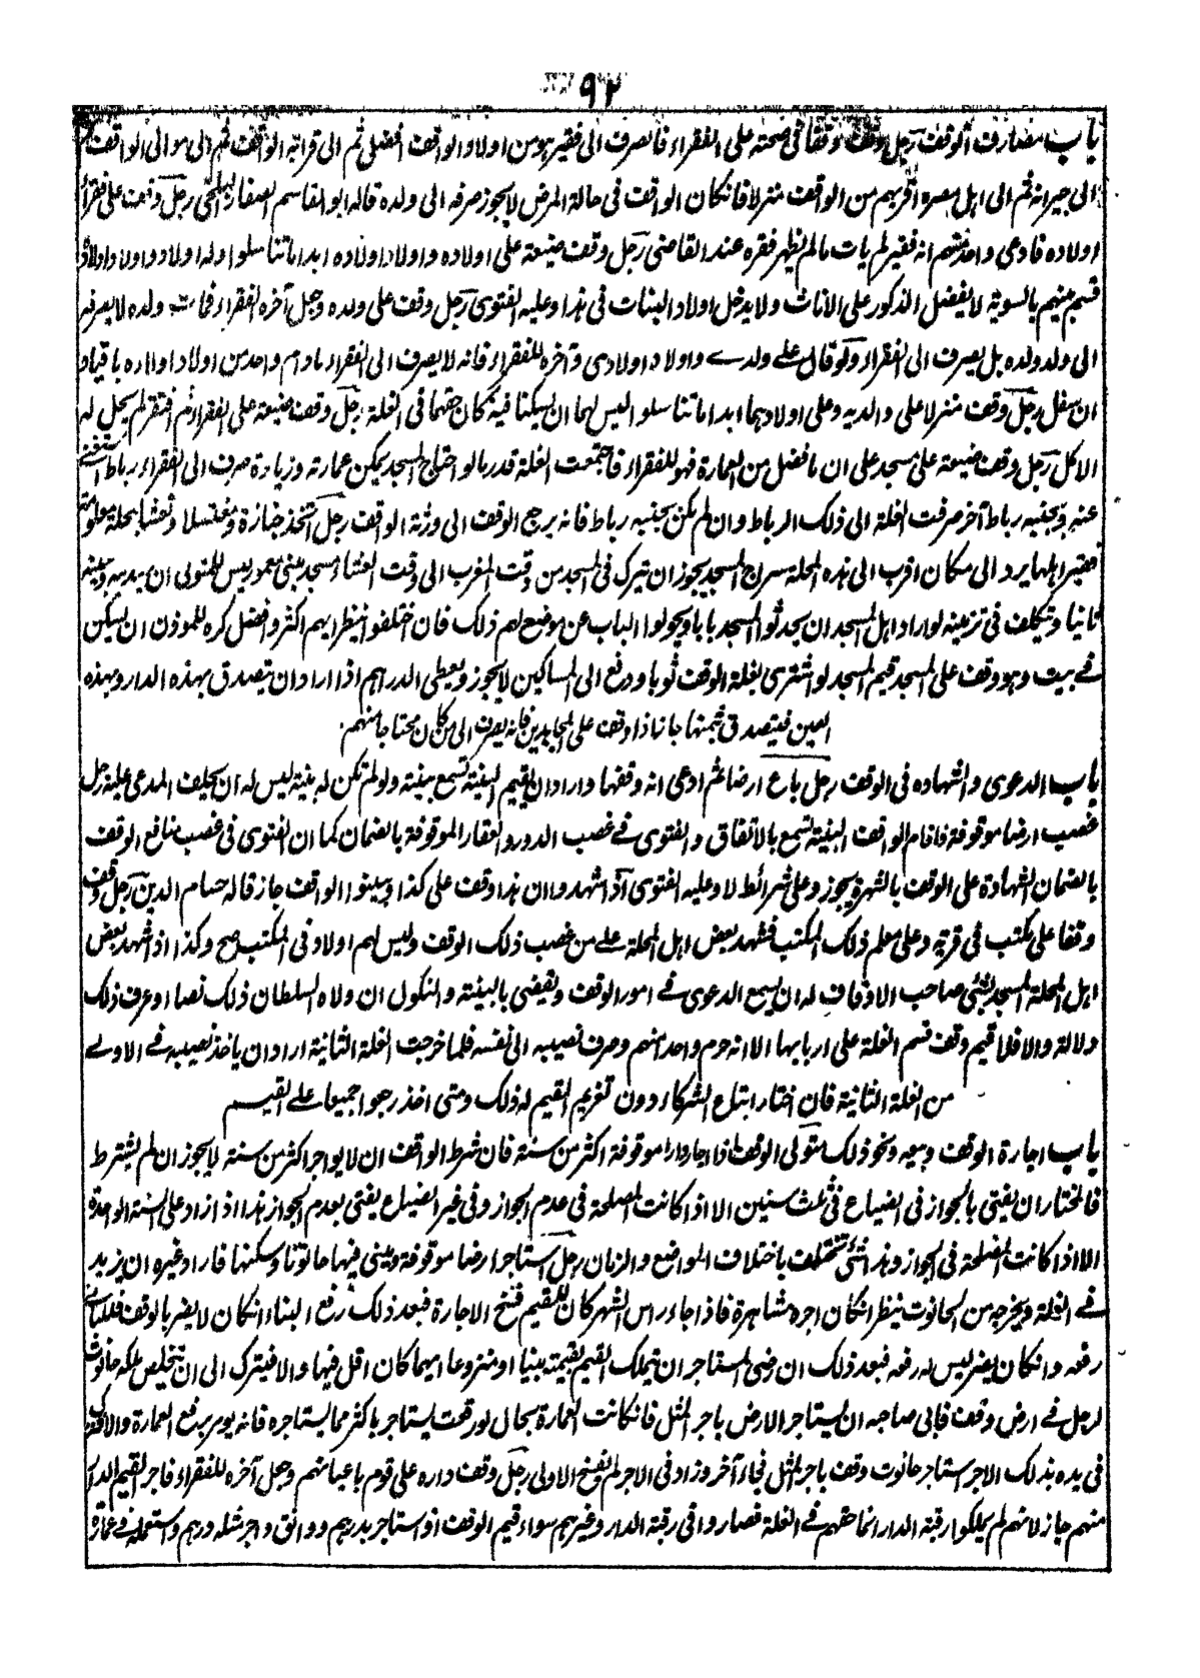 ۹۲
باب مصارف الوقف رجل وقف وقفا فى صحته على الفقراء فالصرف الى فقير هو من اولاد الواقف افضل ثم الى قرابة الواقف ثم الى موالى الواقف ثم
الى جيرانه ثم الى اهل مصره اقربهم من الواقف منزلا فانكان الوقف فى حالة المرض لايجوز صرفه الى ولده قاله ابوالقاسم الصفار البلخى رجل وقف على فقراء
اولاده فادعى واحد منهم انه فقير لم يات مالم يظهر فقره عند القاضى رجل وقف ضيعة على اولاده واولاد اولاده ابدا ماتناسلوا وله اولاد واولاد اولاد
قسم بينهم بالسوية لايفضل الذكور على الاناث ولايدخل اولاد البنات فى هذا وعليه الفتوى رجل وقف على ولده وجعل آخره للفقراء فمات ولده لايصرف
الى ولد ولده بل يصرف الى الفقراء ولو قال على ولدے واولاد اولادى وآخره للفقراء فانه لايصرف الى الفقراء مادام واحد من اولاد اولاده باقيا و
ان سفل رجل وقف منزلا على والديه وعلى اولادهما ابدا ماتناسلوا ليس لهما ان يسكنا فيه لكان حقهما فى الغلة رجل وقف ضيعة على الفقراء ثم افتقر لم يحل له
الاكل رجل وقف ضيعة على مسجد على ان مافضل من العمارة فهو للفقراء فاجتمعت الغلة قدر مالو احتاج المسجد يمكن عمارته وزيادة صرف الى الفقراء رباط استغنى
عنه وبجنبه رباط آخر صرفت الغلة الى ذلك الرباط وان لم يكن بجنبه رباط فانه يرجع الوقف الى ورثة الواقف رجل اتخذ جنازة ومغتسلا ونعشا بمحلة معلومة
اهلها يرد الى مكان اقرب الى هذه المحلة سرج المسجد يجوز ان تترك فى المسجد من وقت المغرب الى وقت العشاء مسجد مبنى معمور ليس للمتولى ان يهدمه ويبنيه
ثانيا ويتكلف فى تزيينه لو اراد اهل المسجد ان يحدثوا للمسجد بابا ويحولوا الباب عن موضع لهم ذلك فان اختلفوا ينظر ايهم اكثر وافضل كره للموذن ان يسكن
فے بيت وهو وقف على المسجد قيم المسجد لو اشترى بغلة الوقف ثوبا ودفع الى المساكين لايجوز ويعطى الدراهم اذا اراد ان يتصدق بهذه الدار وبهذه
العين فيتصدق بثمنها جاز اذا وقف على المجاهدين فانه يصرف الى من كان محتاجا منهم
باب الدعوى والشهاده فى الوقف رجل باع ارضا ثم ادعى انه وقفها واراد ان يقيم البينة تسمع بينته ولو لم تكن له بينة ليس له ان يحلف المدعى عليه رجل
غصب ارضا موقوفة فاقام الواقف البينة تسمع بالاتفاق والفتوى فے غصب الدور والعقار الموقوفة بالضمان كما ان الفتوى فى غصب منافع الوقف
بالضمان الشهادة على الوقف بالشهرة يجوز وعلى شرائطه لا وعليه الفتوى اذا شهدوا ان هذا وقف على كذا وبينوا الواقف جاز قاله حسام الدين رجل وقف
وقفا على مكتب فى قرية وعلى معلم ذلك المكتب فشهد بعض اهل المحلة على من غصب ذلك الوقف وليس لهم اولاد فى المكتب صح وكذا اذا شهد بعض
اهل المحلة للمسجد بشئى صاحب الاوقاف له ان يسمع الدعوى فے امور الوقف ويقضى بالبينة والنكول ان ولاه السلطان ذلك نصا او عرف ذلك
دلالة والا فلا قيم وقف قسم الغلة على اربابها الا انه حرم واحد منهم وصرف نصيبه الى نفسه فلما خرجت الغلة الثانية اراد ان ياخذ نصيبه فے الاولے
من الغلة الثانية فان اختار اتباع الشركاء دون تغريم القيم له ذلك ومتى اخذ رجعوا جميعا على القيم
باب اجارة الوقف وبيعه ونحو ذلك متولى الوقف اذا اجر دارا موقوفة اكثر من سنة فان شرط الواقف ان لايواجر اكثر من سنة لايجوز ان لم يشترط
فالمختار ان يفتى بالجواز فى الضياع فى ثلث سنين الا اذا كانت المصلحة فى عدم الجواز وفى غير الضياع يفتى بعدم الجواز هذا اذا زاد على السنة الواحدة
الا اذا كانت المصلحة فى الجواز وهذا شئى يختلف باختلاف المواضع والزمان رجل استاجر ارضا موقوفة وبنى فيها حانوتا وسكنها فاراد غيره ان يزيد
فے الغلة ويخرجه من الحانوت ينظر انكان اجره مشاهرة فاذا جاء راس الشهر كان للقيم فسخ الاجارة فبعد ذلك رفع البناء انكان لايضر بالوقف فللبانى
رفعه وانكان يضر ليس له رفعه فبعد ذلك ان رضى المستاجر ان يتملك القيم بقيمته مبنيا او منزوعا ايهما كان اقل فبها والا فيترك الى ان يتخلص ملكه حانوت
لرجل فے ارض وقف فابى صاحبه ان يستاجر الارض باجر المثل فانكانت العمارة بحال لو رفعت يستاجر باكثر مما يستاجره فانه يومر برفع العمارة والا ترك
فى يده بذلك الاجر استاجر حانوت وقف باجر المثل فجاء آخر وزاد فى الاجر لم يفسخ الاولى رجل وقف داره على قوم باعيانهم وجعل آخره للفقراء فاجر القيم الدار
منهم جاز لانهم لم يملكوا رقبة الدار انما حقهم فے الغلة فصاروا فى رقبة الدار وغيرهم سواء قيم الوقف اذا استاجر بدرهم ودانق واجر مثله درهم واستعمله فے عمارة